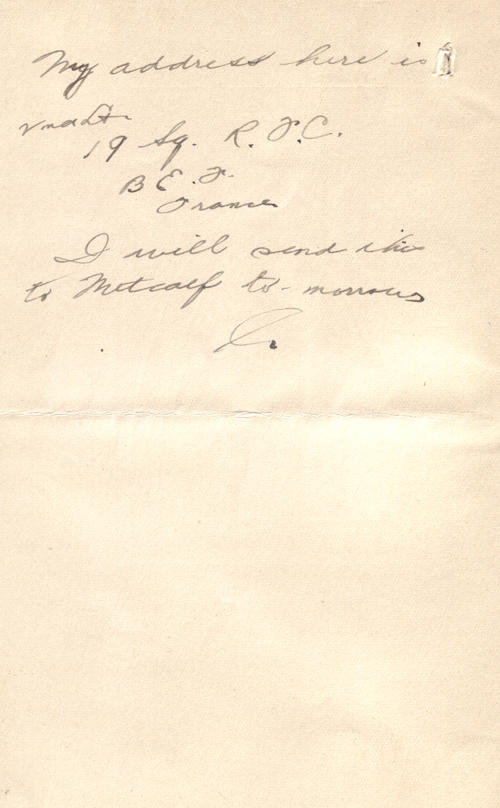 My address here is
19 Sq. R.F.C.
B E. F.
France
I will send this
to Metcalf to-morrow